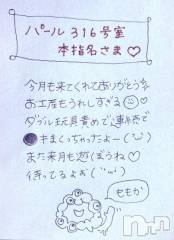 パール316号室
本指名さま♡
今月も来てくれてありがとう
お土産もうれしすぎる♡
ダブル玩具責めで連続で
キまくっちゃったよー
また来月も遊ぼうね♡
待ってるよぉ
ももか